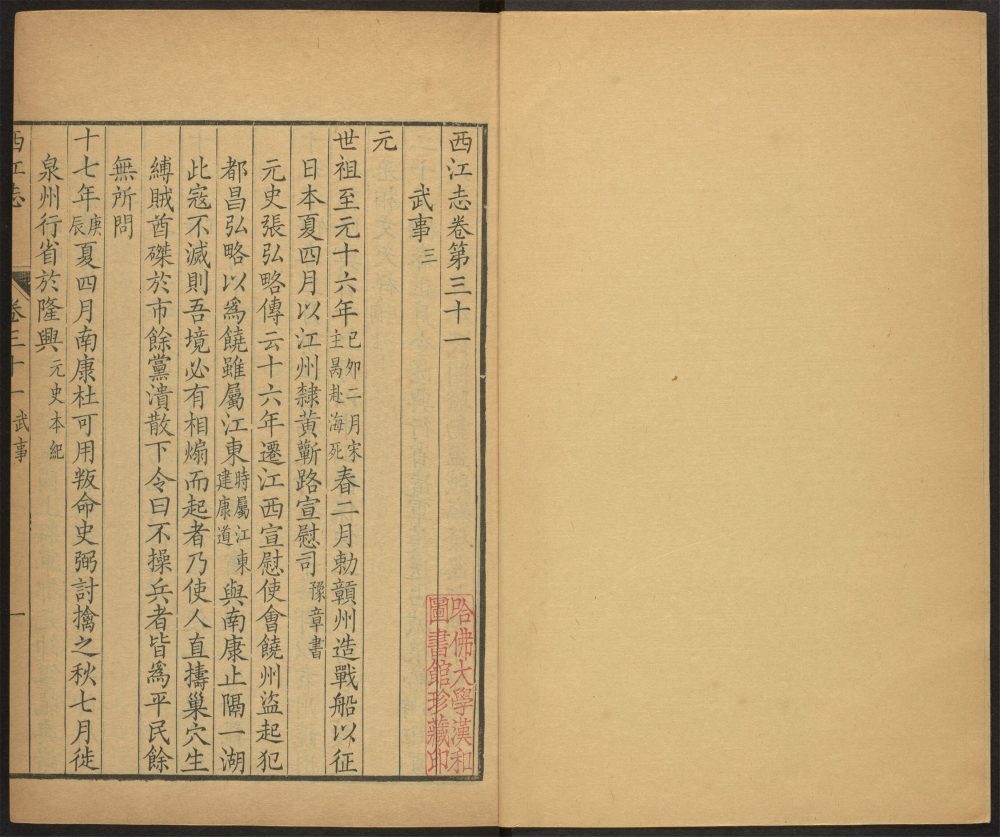 西江志卷第三十一
武事三
元
世祖至元十六年己卯二月宋主昺赴海死春二月勅贛州造戰船以征
日本夏四月以江州隸黃蘄路宣慰司豫章書
元史張弘略傳云十六年遷江西宣慰使會饒州盜起犯
都昌弘略以爲饒雖屬江東時屬江東建康道與南康止隔一湖
此寇不滅則吾境必有相煽而起者乃使人直擣巢穴生
縛賊酋磔於市餘黨潰散下令曰不操兵者皆爲平民餘
無所問
十七年庚辰夏四月南康杜可用叛命史弼討擒之秋七月徙
泉州行省於隆興元史本紀
西江志 卷三十一 武事 一
哈佛大學漢和
圖書館珍藏印